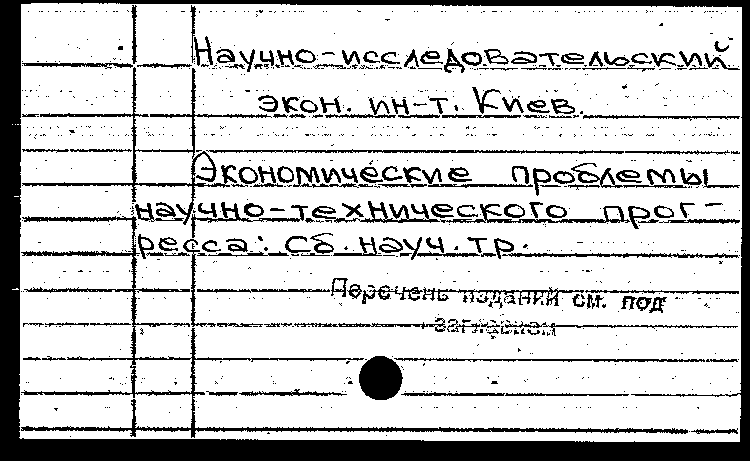 Научно-исследовательский
экон. ин-т. Киев.
Экономические проблемы
научно-технического прог-
ресса: Сб. науч. тр.
Перечень изданий см. под
заглавием